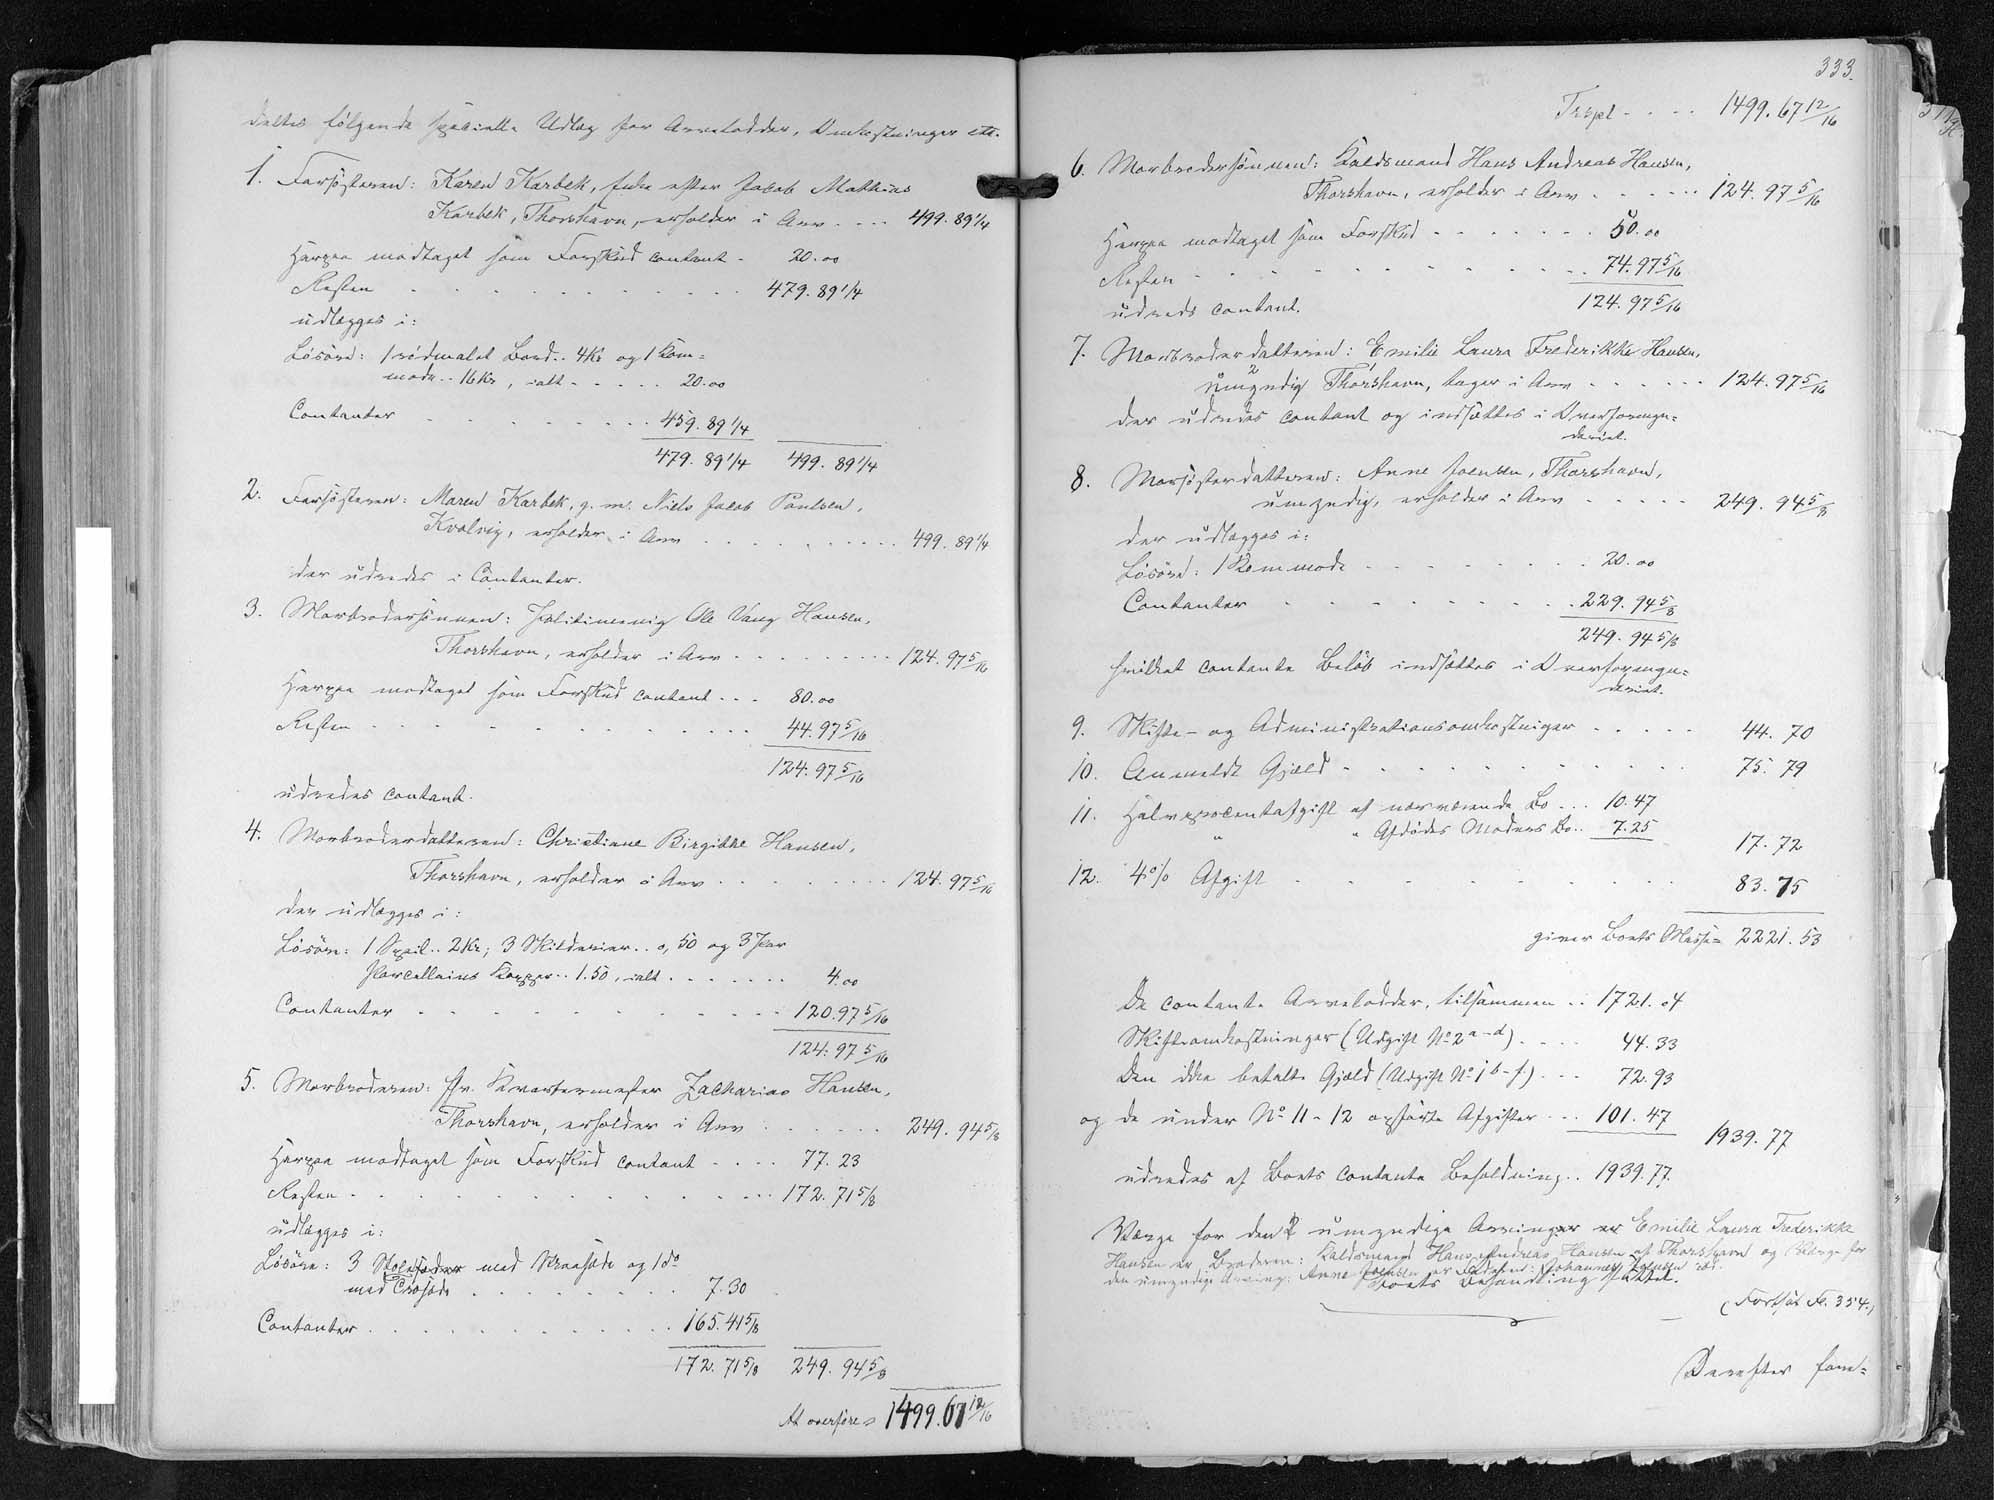 deltes følgende specielle Udlæg for Arvelodder, Omkostninger etc.
1. Farsösteren: Karen Karbek, Enke efter Jacob Mathias
Karbek, Thorshavn, erholder i Arv . . . 499. 89 1/4
Herpaa modtaget som Forskud contant . 20.00
Resten . . . 479. 89 1/4
udlægges i:
Lösöre: 1 rödmalet Bord.. 4 Kr og 1 Kom=
mode.. 16 Kr, ialt . . . 20.00
Contanter . . . 459. 89 1/4
479. 89 1/4 499. 89 1/4
2. Farsösteren: Maren Karbek, g. m. Niels Jacob Poulsen,
Kvalvig, erholder i Arv . . . 499. 89 1/4
der udredes i Contanter.
3. Morbrodersönnen: Politimenig Ole Vang Hansen,
Thorshavn, erholder i Arv . . . 124. 97 5/16
Herpaa modtaget som Forskud contant . . . 80.00
Resten . . . 44. 97 5/16
124. 97 5/16
udredes contant.
4. Morbroderdatteren: Christiane Birgitte Hansen,
Thorshavn, erholder i Arv . . . 124. 97 5/16
der udlægges i:
Lösöre: 1 Speil.. 2 Kr; 3 Skilderier.. 0,50 og 3 Par
Porcellains Kopper.. 1.50, ialt . . . 4.00
Contanter . . . 120. 97 5/16
124. 97 5/16
5. Morbroderen: fhv. Kvartermester Zacharias Hansen,
Thorshavn, erholder i Arv . . . 249. 94 5/8
Herpaa modtaget som Forskud contant . . . 77. 23
Resten . . . 172. 71 5/8
udlægges i:
Lösöre: 3 Stole med Straasæde og 1 do
med . . . 7.30
Contanter . . . 165. 41 5/8
172. 71 5/8 249. 94 5/8
At overføre = 1499. 67 12/16
333.
Trspt . . . 1499. 67 12/16
6. Morbrodersönnen: Kaldsmand Hans Andreas Hansen,
Thorshavn, erholder i Arv . . . 124. 97 5/16
Herpaa modtaget som Forskud . . . 50.00
Resten . . . 74. 97 5/16
udreds contant. 124. 97 5/16
7. Morbroderdatteren: Emilie Laura Frederikke Hansen,
umyndig Thorshavn, tager i Arv . . . 124. 97 5/16
der udredes contant og indsættes i Overformyn=
deriet.
8. Morsösterdatteren: Anne Joensen, Thorshavn,
umyndig, erholder i Arv . . . 249. 94 5/8
der udlægges i:
Lösöre: 1 Kommode . . . 20.00
Contanter . . . 229. 94 5/8
249. 94 5/8
hvilket contante Belöb indsættes i Overformyn=
deriet.
9. Skifte- og Administrationsomkostninger . . . 44. 70
10. Anmeldt Gjæld . . . 75. 79
11. Halvprocentafgift af nærværende Bo . . . 10.47
" " Afdödes Moders Bo.. 7.25 17. 72
12. 4% Afgift . . . 83. 75
giver Boets Masse = 2221. 53
De contante Arvelodder, tilsammen .. 1721. 04
Skifteomkostninger (Udgift No 2 a-d) . . . 44. 33
Den ikke betalte Gjæld (Udgift No 1 b-f) . . . 72. 93
og de under No 11-12 opførte Afgifter . . . 101. 47 1939. 77
udredes af Boets contante Beholdning.. 1939.77.
Værge for den umyndige Arving Emilie Laura Frederikke
Hansen er Broderen: Kaldsmand Hans Andreas Hansen af Thorshavn og Værge for
den umyndige Arving: Anne Joensen er Faderen: Johannes Joensen
Boets Behandling sluttet.
(Fortsat Fl. 354.)
Derefter fore=